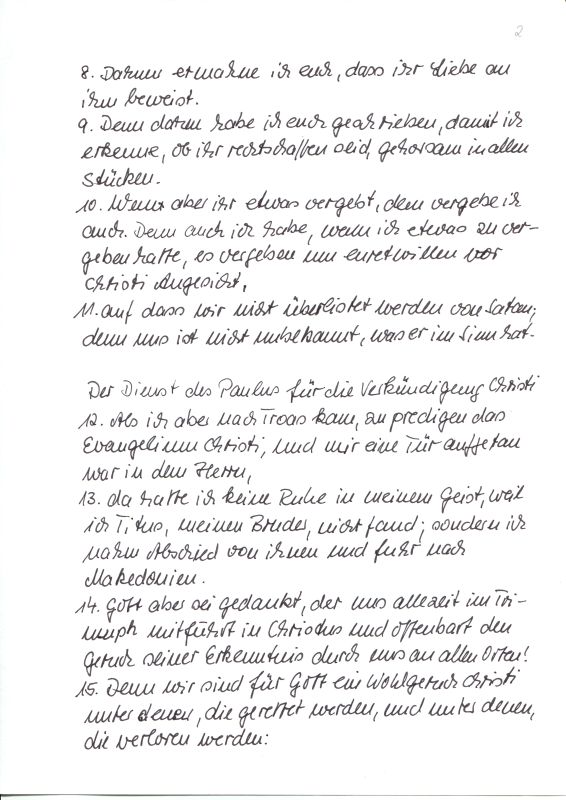 2
8. Darum ermahne ich euch, dass ihr Liebe an
ihm beweist.
9. Denn darum habe ich euch geschrieben, damit ich
erkenne, ob ihr rechtschaffen seid, gehorsam in allen
Stücken.
10. Wenn aber ihr etwas vergebt, dem vergebe ich
auch. Denn auch ich habe, wenn ich etwas zu ver-
geben hatte, es vergeben um euretwillen vor
Christi Angesicht,
11. auf dass wir nicht überlistet werden von Satan;
denn uns ist nicht unbekannt, was er im Sinn hat.
Der Dienst des Paulus für die Verkündigung Christi
12. Als ich aber nach Troas kam, zu predigen das
Evangelium Christi, und mir eine Tür aufgetan
war in dem Herrn,
13. da hatte ich keine Ruhe in meinem Geist, weil
ich Titus, meinen Bruder, nicht fand; sondern ich
nahm Abschied von ihnen und fuhr nach
Makedonien.
14. Gott aber sei gedankt, der uns allezeit im Tri-
umph mitführt in Christus und offenbart den
Geruch seiner Erkenntnis durch uns an allen Orten!
15. Denn wir sind für Gott ein Wohlgeruch Christi
unter denen, die gerettet werden, und unter denen,
die verloren werden: